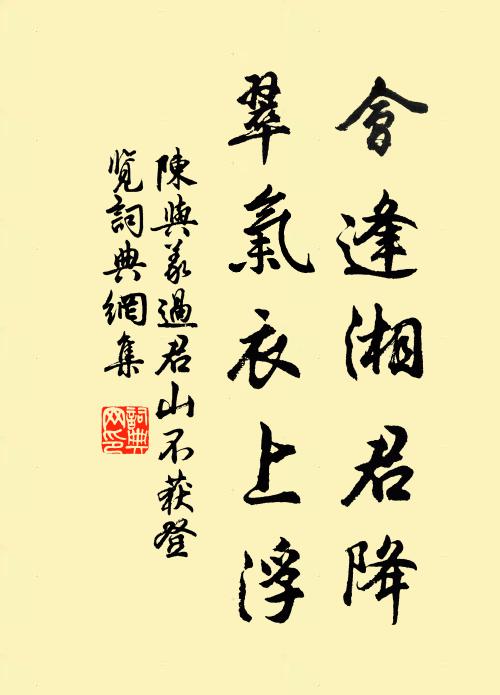 會逢湘君降
翠氣衣上浮
陳與義過君山不获登
覽詞典網集
詞典
网印